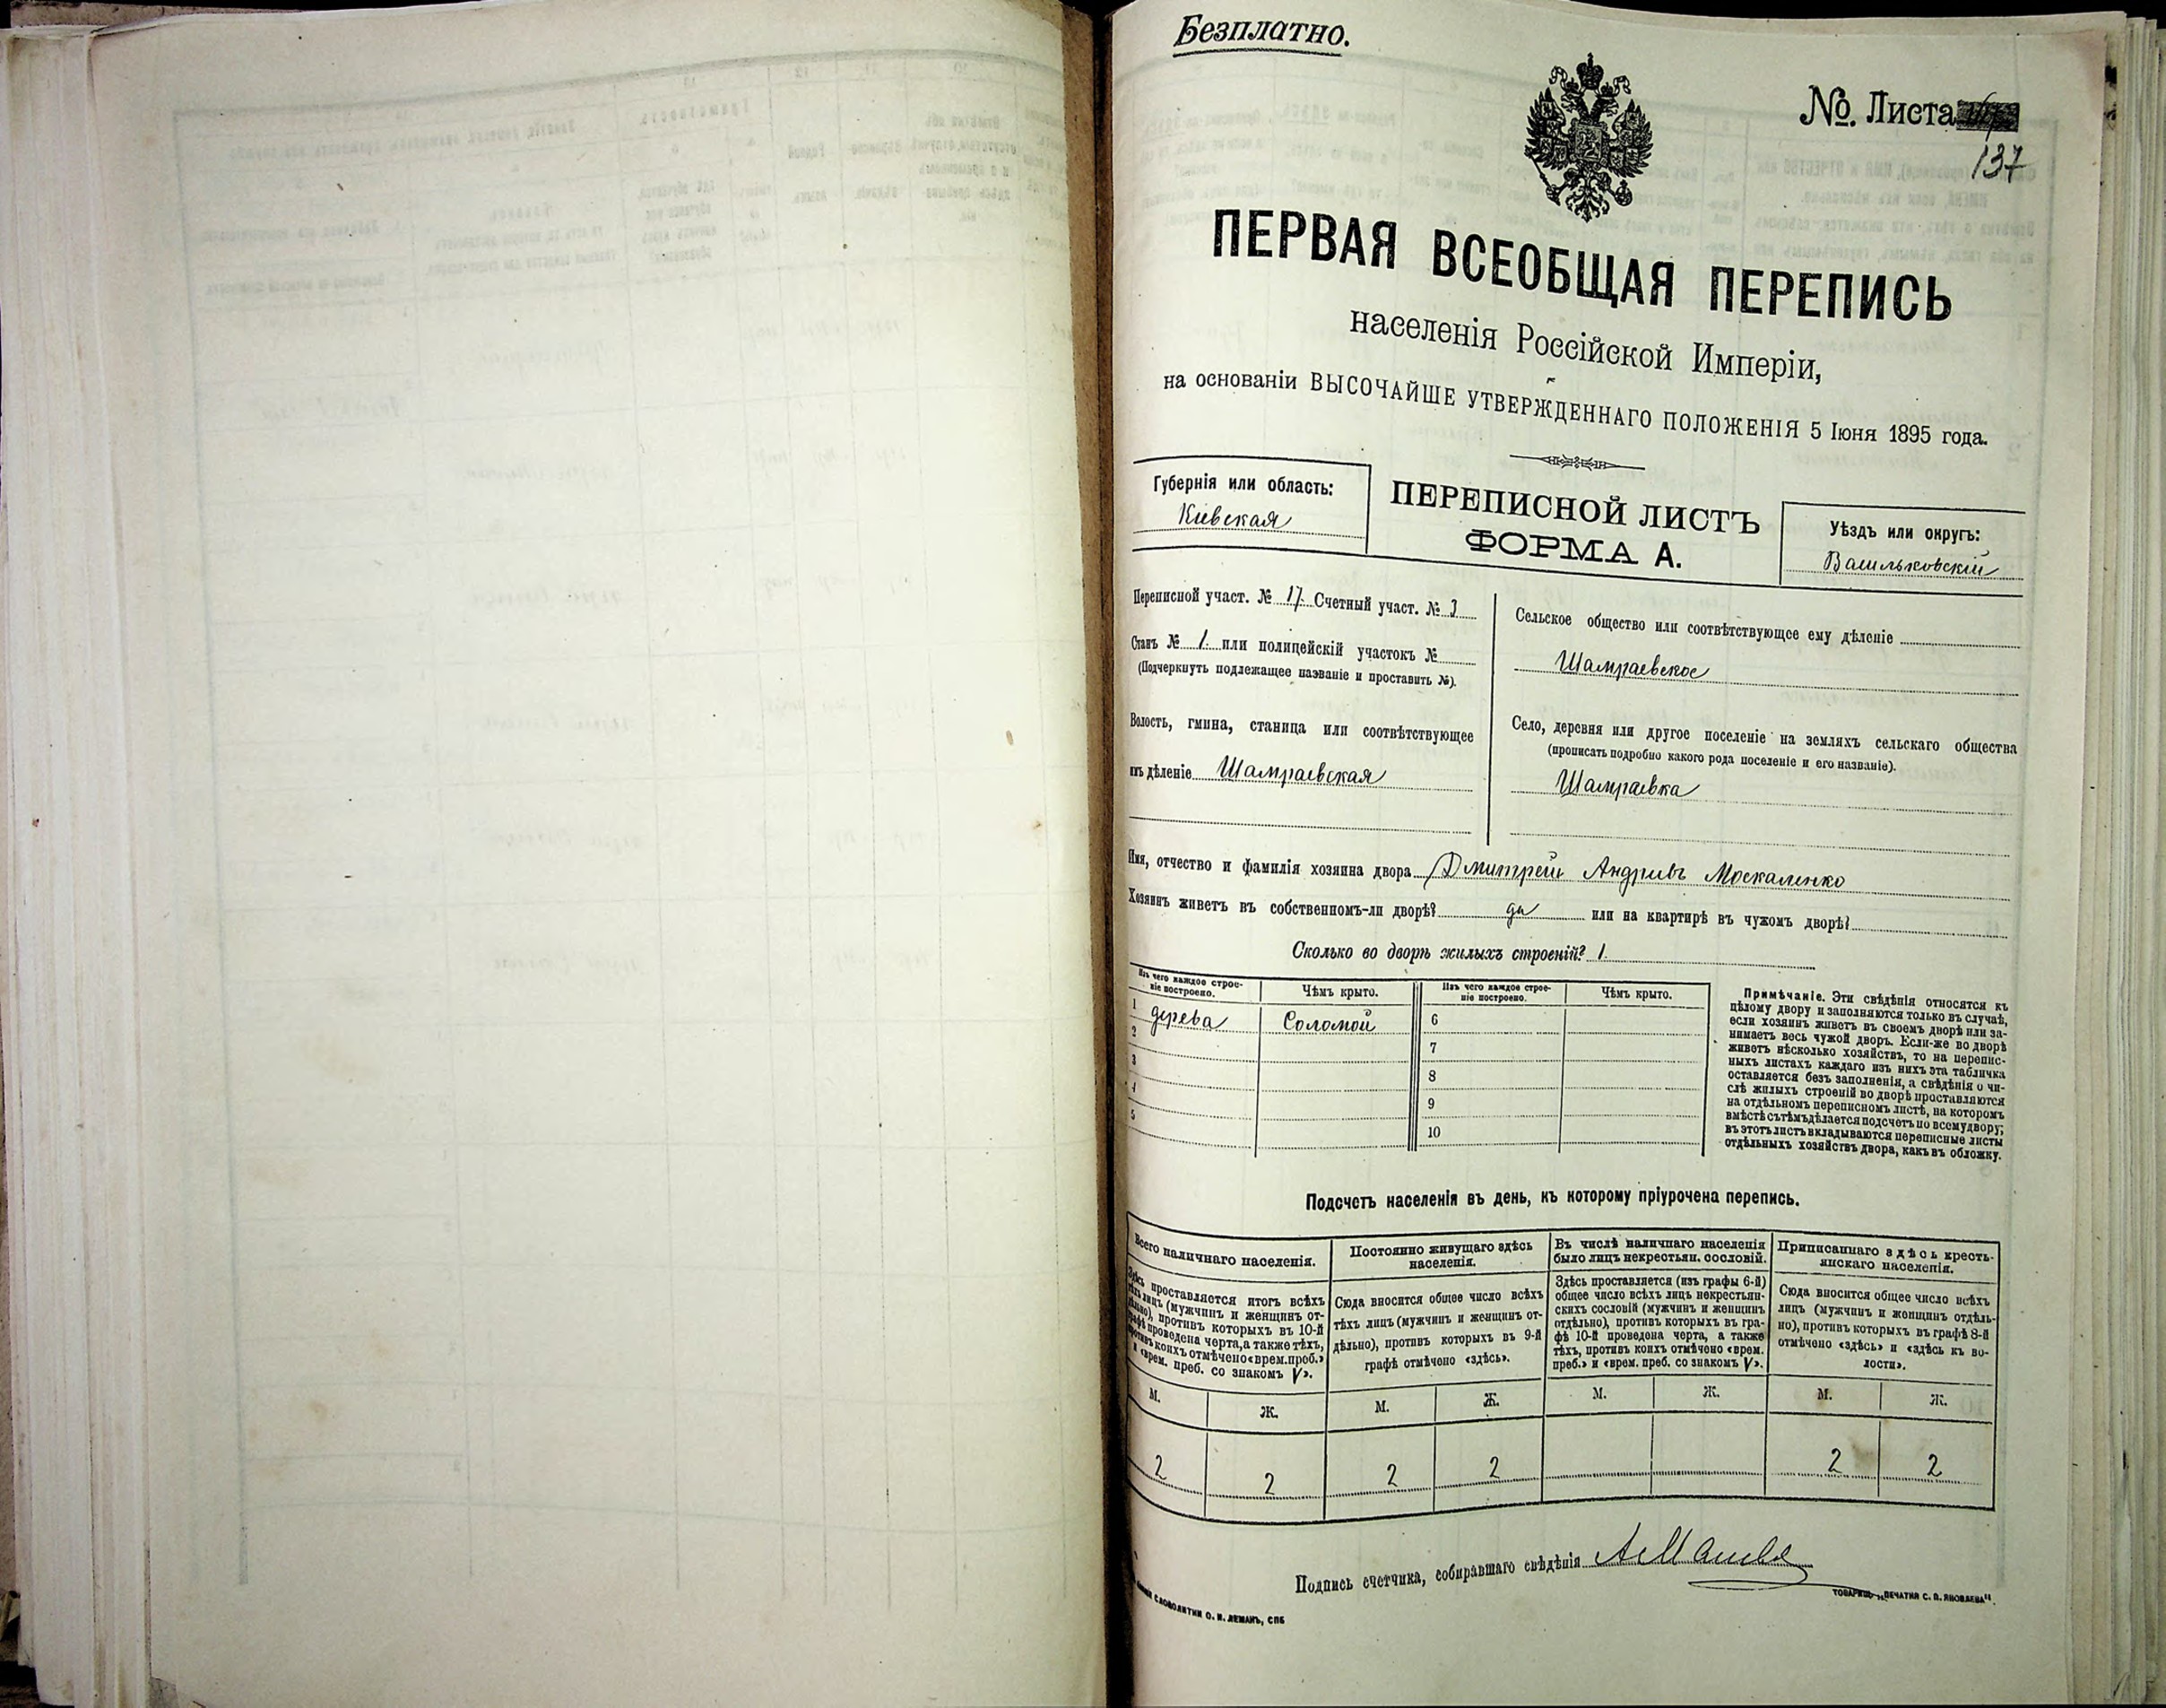 Безплатно.
№. Листа
137
ПЕРВАЯ ВСЕОБЩАЯ ПЕРЕПИСЬ
населенія Россійской Имперіи,
на основаніи ВЫСОЧАЙШЕ УТВЕРЖДЕННАГО ПОЛОЖЕНІЯ 5 Іюня 1895 года.
Губернія или область:
Кіевская
ПЕРЕПИСНОЙ ЛИСТЪ
ФОРМА А.
Уѣздъ или округъ:
Васильковскій
Переписной участ. № 17. Счетный участ. № 3
Станъ № 1. или полицейскій участокъ №
(Подчеркнуть подлежащее названіе и проставить №).
Волость, гмина, станица или соотвѣтствующее
имъ дѣленіе Шамраевская
Сельское общество или соотвѣтствующее ему дѣленіе
Шамраевское
Село, деревня или другое поселеніе на земляхъ сельскаго общества
(прописать подробно какого рода поселеніе и его названіе).
Шамраевка
Имя, отчество и фамилія хозяина двора Дмитрей Андріевъ Москаленко
Хозяинъ живетъ въ собственномъ-ли дворѣ? да или на квартирѣ въ чужомъ дворѣ?
Сколько во дворѣ жилыхъ строеній? 1.
Изъ чего каждое строе-
ніе построено.
Чѣмъ крыто.
Изъ чего каждое строе-
ніе построено.
Чѣмъ крыто.
1 дерева Соломой 6
2 7
3 8
4 9
5 10
Примѣчаніе. Эти свѣдѣнія относятся къ
цѣлому двору и заполняются только въ случаѣ,
если хозяинъ живетъ въ своемъ дворѣ или за-
нимаетъ весь чужой дворъ. Если-же во дворѣ
живетъ нѣсколько хозяйствъ, то на перепис-
ныхъ листахъ каждаго изъ нихъ эта табличка
оставляется безъ заполненія, а свѣдѣнія о чи-
слѣ жилыхъ строеній во дворѣ проставляются
на отдѣльномъ переписномъ листѣ, на которомъ
вмѣстѣ съ тѣмъ дѣлается подсчетъ по всему двору;
въ этотъ листъ вкладываются переписные листы
отдѣльныхъ хозяйствъ двора, какъ въ обложку.
Подсчетъ населенія въ день, къ которому пріурочена перепись.
Всего наличнаго населенія.
Здѣсь проставляется итогъ всѣхъ
тѣхъ лицъ (мужчинъ и женщинъ от-
дѣльно), противъ которыхъ въ 10-й
графѣ проведена черта, а также тѣхъ,
противъ коихъ отмѣчено «врем. преб.»
и «врем. преб. со знакомъ V».
Постоянно живущаго здѣсь
населенія.
Сюда вносится общее число всѣхъ
тѣхъ лицъ (мужчинъ и женщинъ от-
дѣльно), противъ которыхъ въ 9-й
графѣ отмѣчено «здѣсь».
Въ числѣ наличнаго населенія
было лицъ некрестьян. сословій.
Здѣсь проставляется (изъ графы 6-й)
общее число всѣхъ лицъ некрестьян-
скихъ сословій (мужчинъ и женщинъ
отдѣльно), противъ которыхъ въ гра-
фѣ 10-й проведена черта, а также
тѣхъ, противъ коихъ отмѣчено «врем.
преб.» и «врем. преб. со знакомъ V».
Приписаннаго здѣсь кресть-
янскаго населенія.
Сюда вносится общее число всѣхъ
лицъ (мужчинъ и женщинъ отдѣль-
но), противъ которыхъ въ графѣ 8-й
отмѣчено «здѣсь» и «здѣсь къ во-
лости».
М. Ж. М. Ж. М. Ж. М. Ж.
2 2 2 2 2 2
Подпись счетчика, собиравшаго свѣдѣнія
СЛОВОЛИТНИ О. И. ЛЕМАНЪ, СПБ
ТОВАРИЩ. „ПЕЧАТНЯ С. П. ЯКОВЛЕВА".